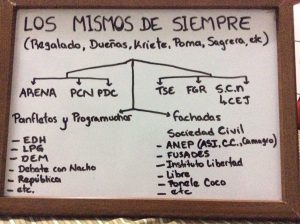 LOS MISMOS DE SIEMPRE
(Regalado, Dueñas, Kriete, Poma, Sagrera, etc)
ARENA PCN PDC TSE FGR S.C.n
↳ CEJ
Panfletos y Programuchos
– EDH
– LPG
– DEM
– Debate con Nacho
– República
– etc.
Fachadas
Sociedad Civil
– ANEP (ASI, C.C., Camagro)
– FUSADES
– Instituto Libertad
– Libre
– Ponele Coco
– etc